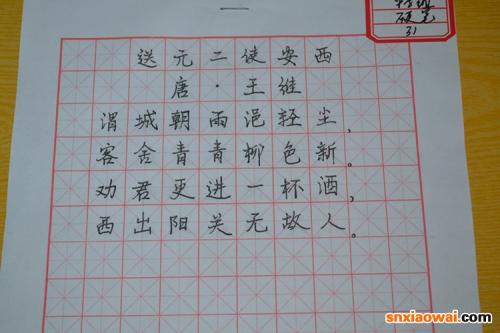 硬笔
31
送元二使安西
唐·王维
渭城朝雨浥轻尘，
客舍青青柳色新。
劝君更进一杯酒，
西出阳关无故人。
snxiaowai.com